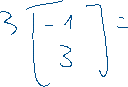 3 [-1
3] =